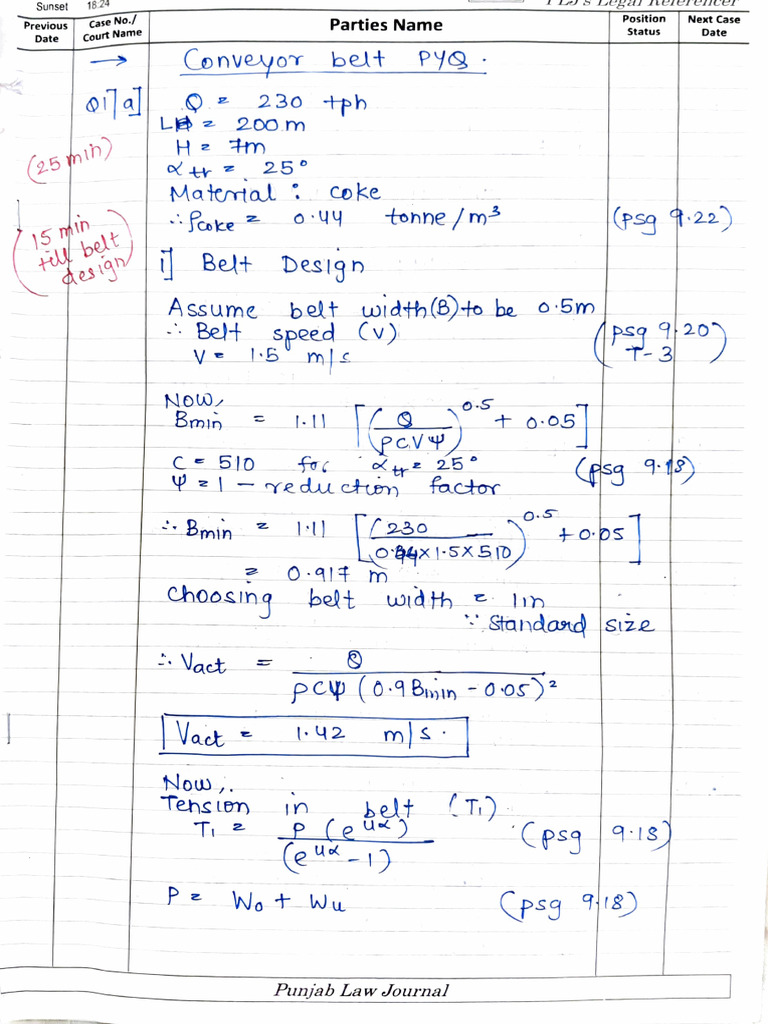 Sunset 18:24
PLJ's Legal Referencer
Previous Date
Case No./ Court Name
Parties Name
Position Status
Next Case Date
→ Conveyor belt PYQ.
Q1] a] Q = 230 tph
L = 200 m
H = 7m
(25 min)
αtr = 25°
Material : coke
∴ ρcoke = 0.44 tonne/m³ (psg 9.22)
(15 min till belt design)
i] Belt Design
Assume belt width(B) to be 0.5m
∴ Belt speed (V) (psg 9.20 T-3)
V = 1.5 m/s
Now,
Bmin = 1.11 [(Q / ρCVΨ)^0.5 + 0.05]
C = 510 for αtr = 25° (psg 9.18)
Ψ = 1 — reduction factor
∴ Bmin = 1.11 [(230 / 0.44×1.5×510)^0.5 + 0.05]
= 0.917 m
choosing belt width = 1m
∵ standard size
∴ Vact = Q / ρCΨ (0.9 Bmin - 0.05)²
Vact = 1.42 m/s.
Now,
Tension in belt (T₁)
T₁ = P (e^uα) / (e^uα - 1) (psg 9.18)
P = Wo + Wu (psg 9.18)
Punjab Law Journal